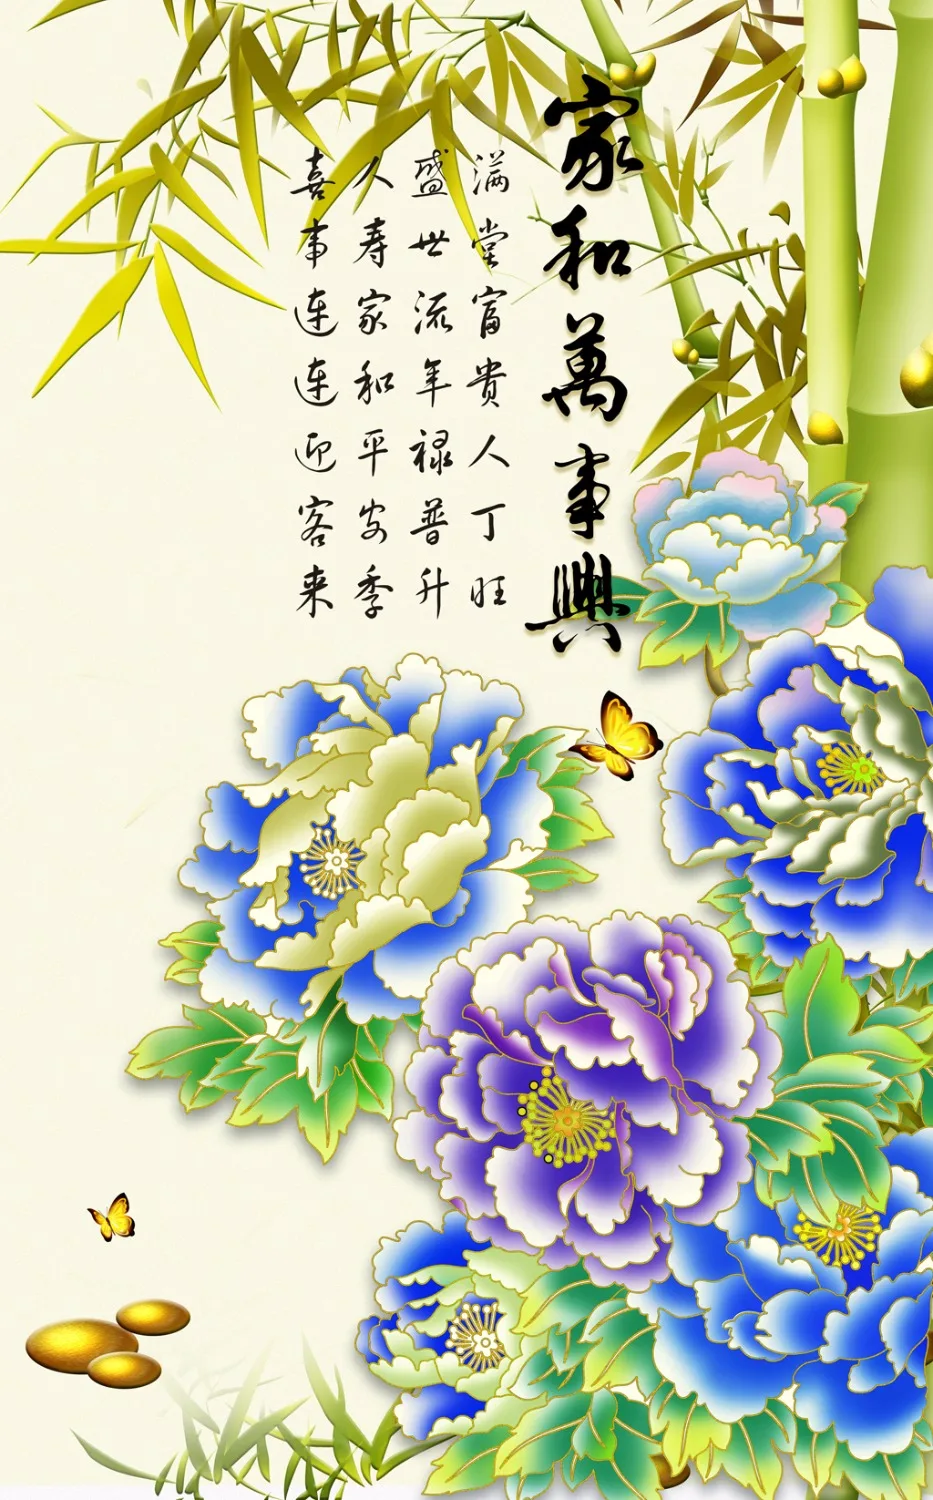 家和萬事興
满堂富貴人丁旺
盛世流年禄普升
人寿家和平安季
喜事连连迎客来